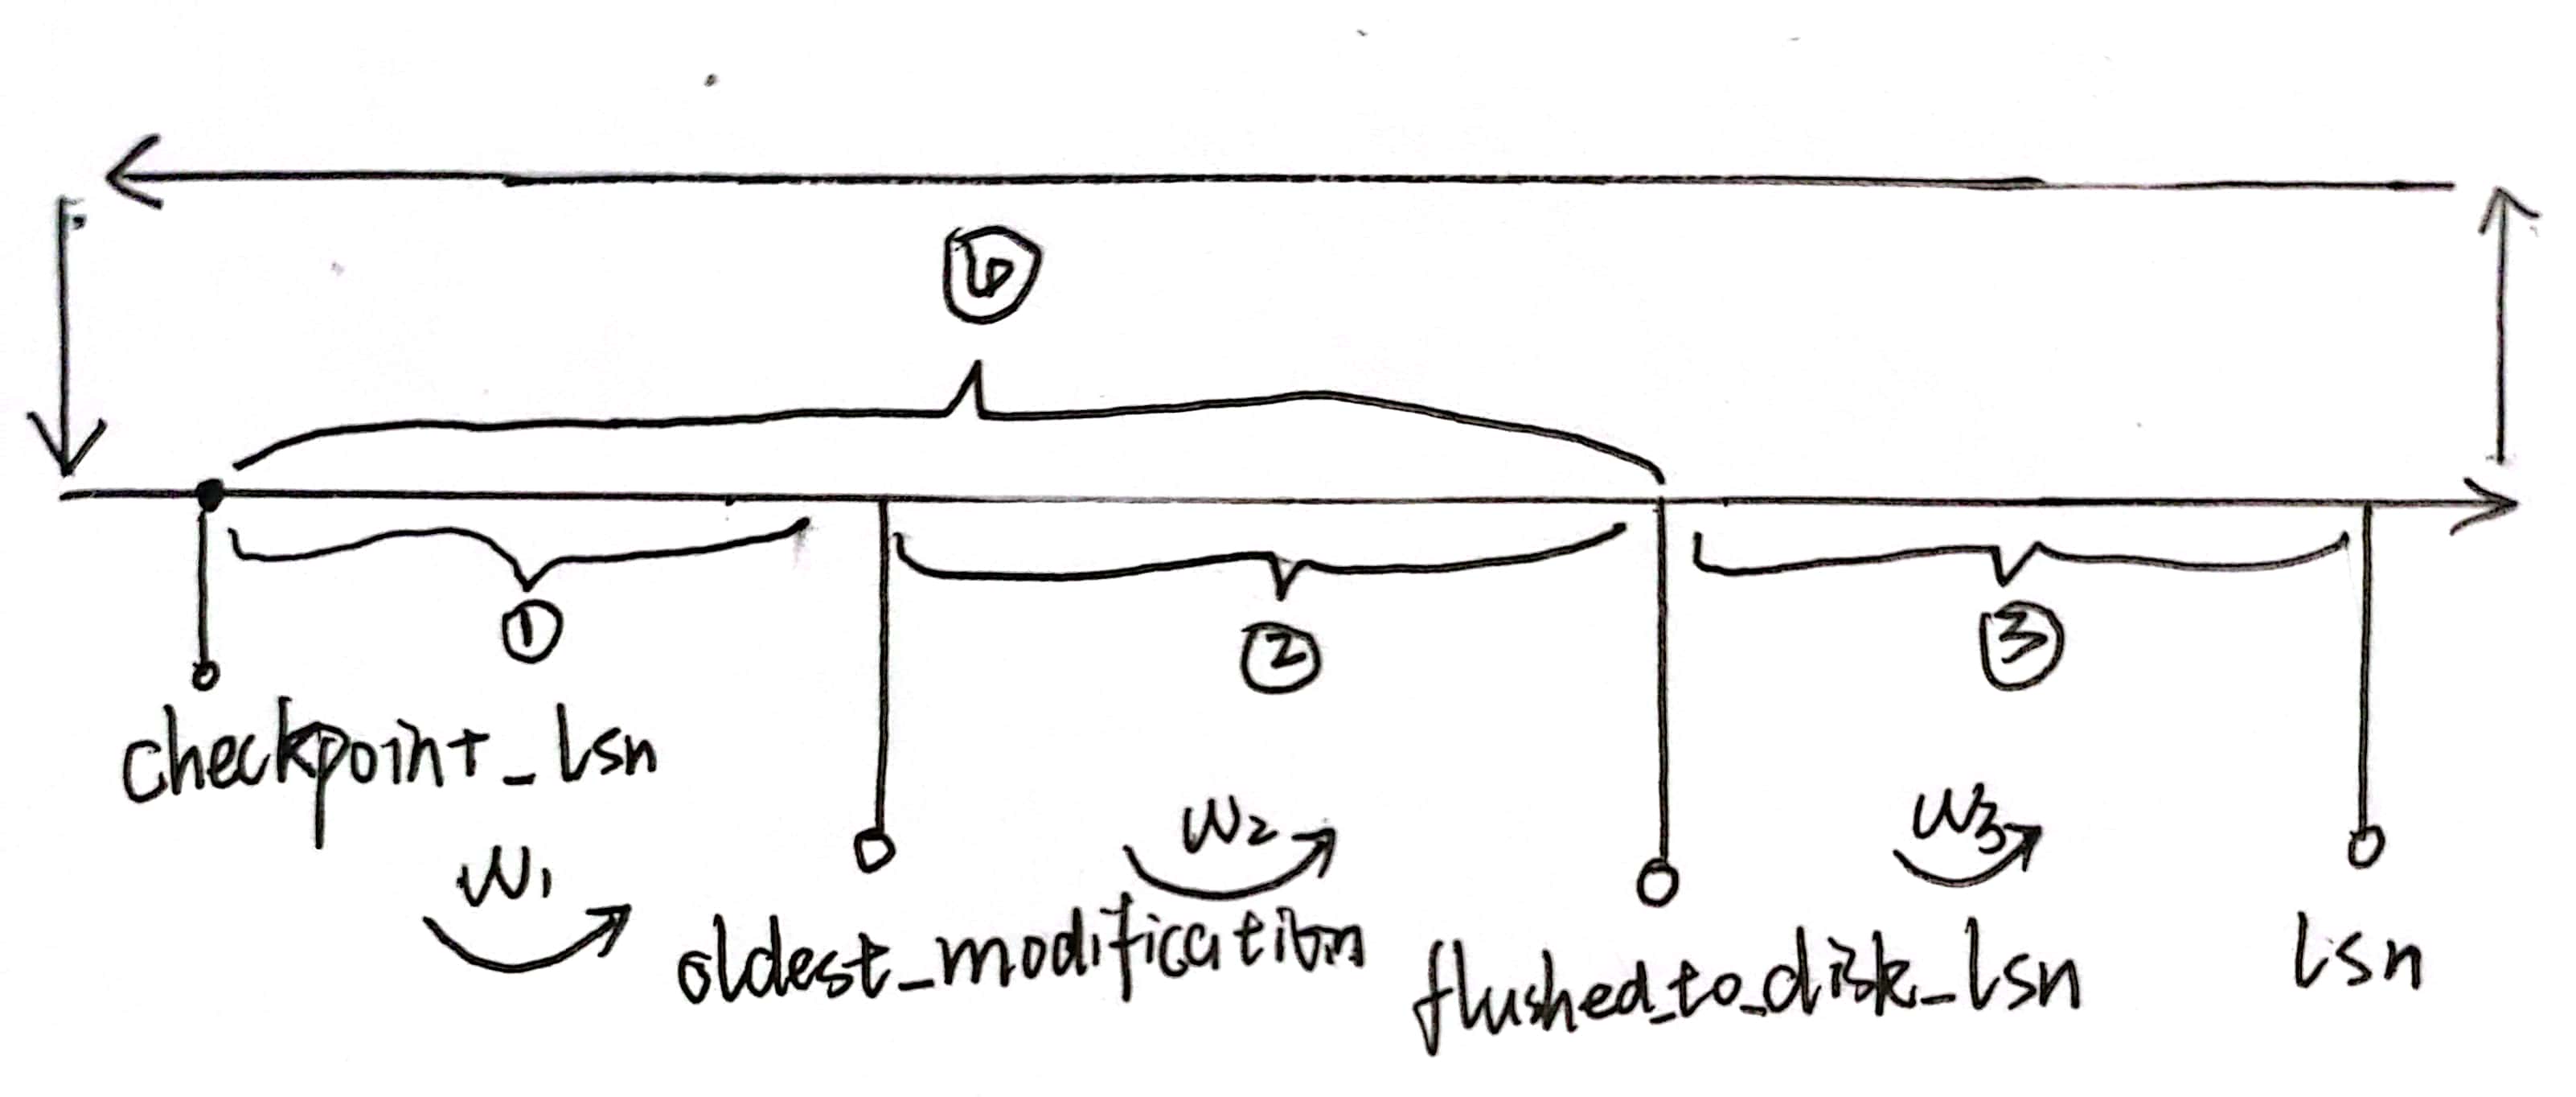 ①
②
③
checkpoint_lsn
w1
w2
w3
oldest_modification
flushed_to_disk_lsn
lsn